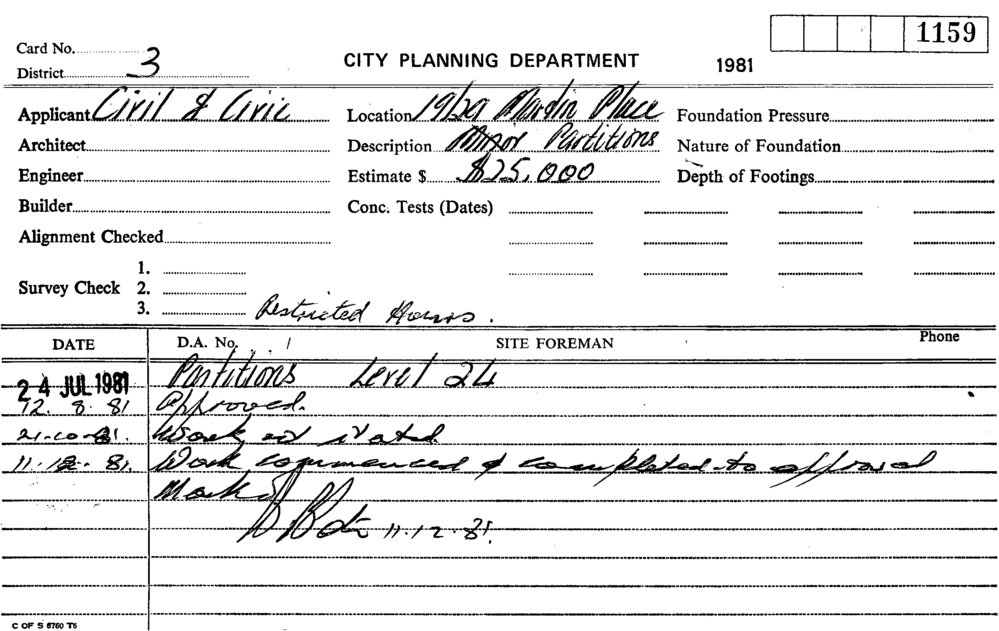 1159
Card No.
District 3
CITY PLANNING DEPARTMENT
1981
Applicant Civil & Civic
Location 19/29 Martin Place
Foundation Pressure
Architect
Description Minor Partitions
Nature of Foundation
Engineer
Estimate $ $25,000
Depth of Footings
Builder
Conc. Tests (Dates)
Alignment Checked
Survey Check
1.
2.
3.
Restricted Hours.
DATE
D.A. No.
SITE FOREMAN
Phone
24 JUL 1981 Partitions Level 24
12. 8. 81 Approved.
21-10-81. Work
11.12. 81. Work commenced & completed to
11.12.81.
C OF S 6760 T5